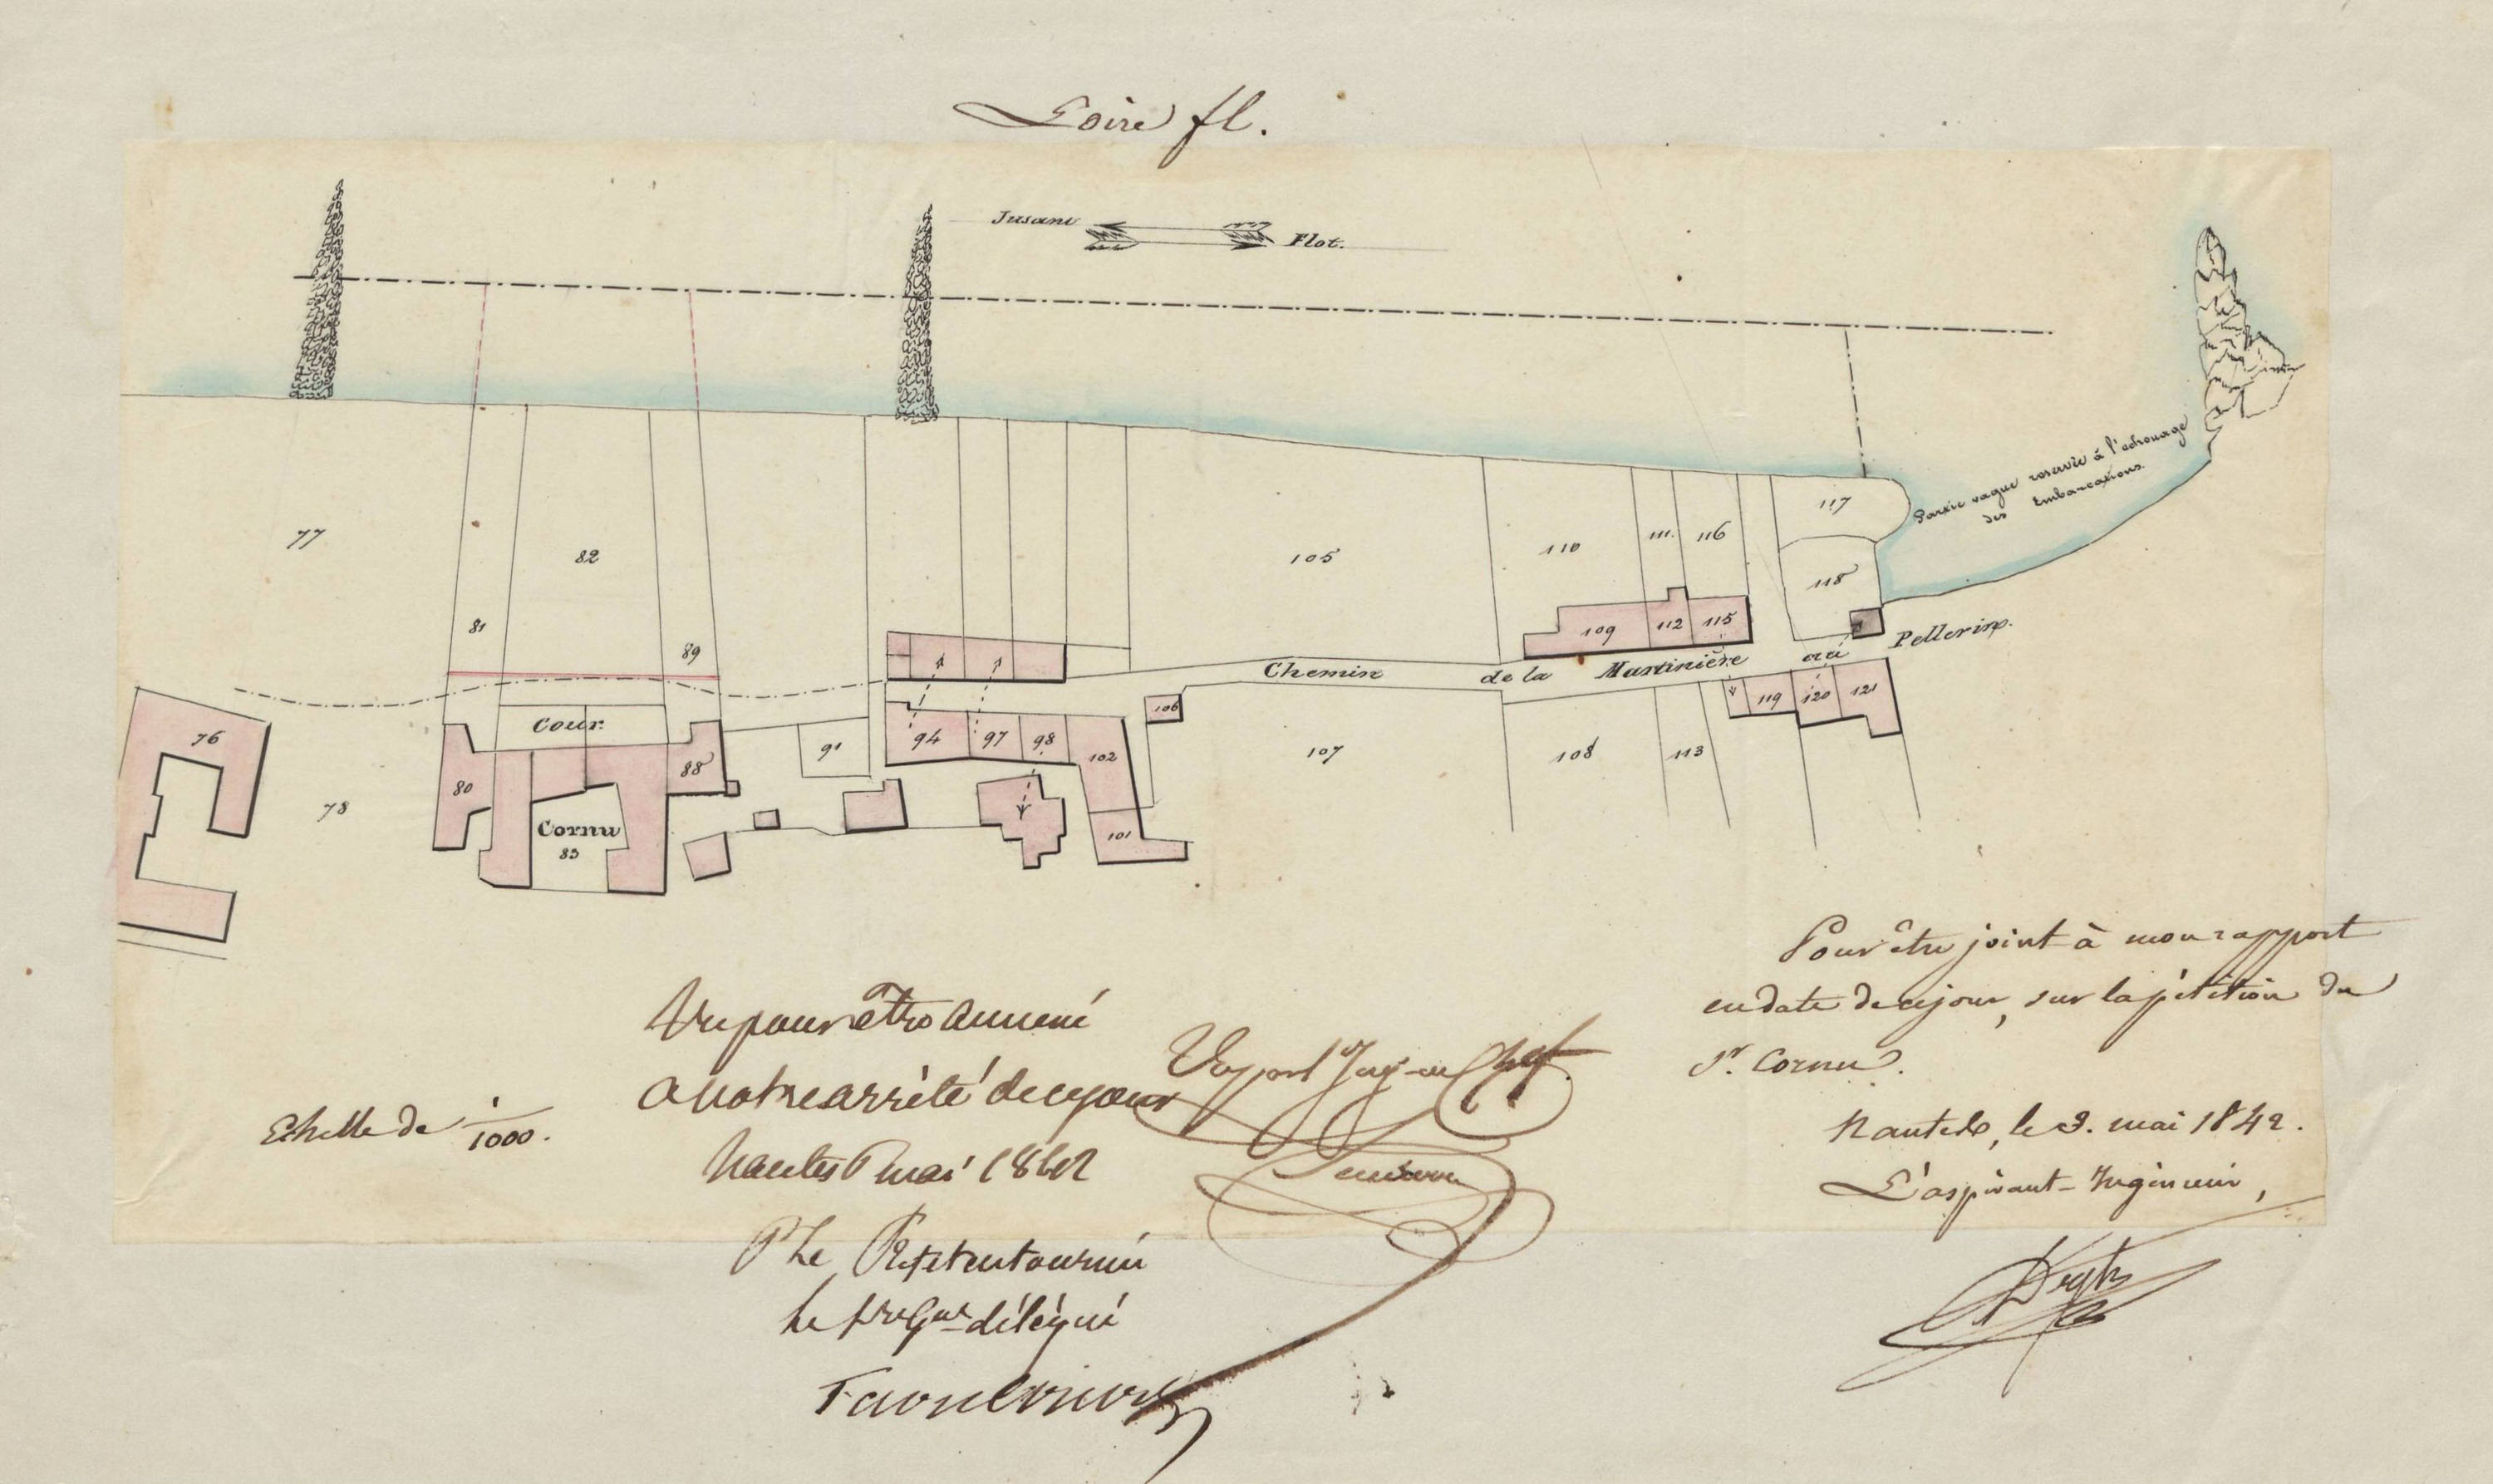 Loire fl.
Jusant
Flot.
Partie vague reservée à l'echouage
des Embarcations.
77
81
82
89
105
110
111.
116
117
118
109
112
115
Chemin de la Martinière au Pellerin.
76
78
80
Cour.
Cornu
83
88
91
94
97
98
102
101
106
107
108
113
119
120
121
Pour être joint à mon rapport
en date de ce jour, sur la pétition du
Sr. Cornu.
Nantes, le 2. mai 1842.
L'aspirant-Ingénieur,
Vu pour être annexé
a notre arrêté de ce jour
Nantes mai 1842
Pr Le Préfet en tournée
Le délégué
Vu par l'Ing-eur Chef.
Echelle de 1/1000.